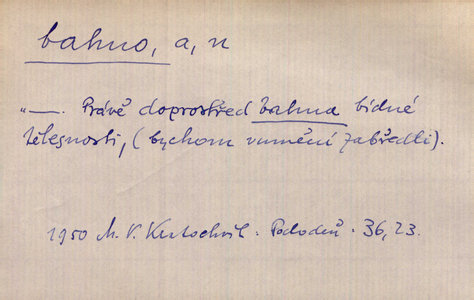 bahno, a, n
"—. Právě doprostřed bahna bídné
tělesnosti, (bychom v umění zabředli).
1950 M. V. Kratochvíl. 36, 23.